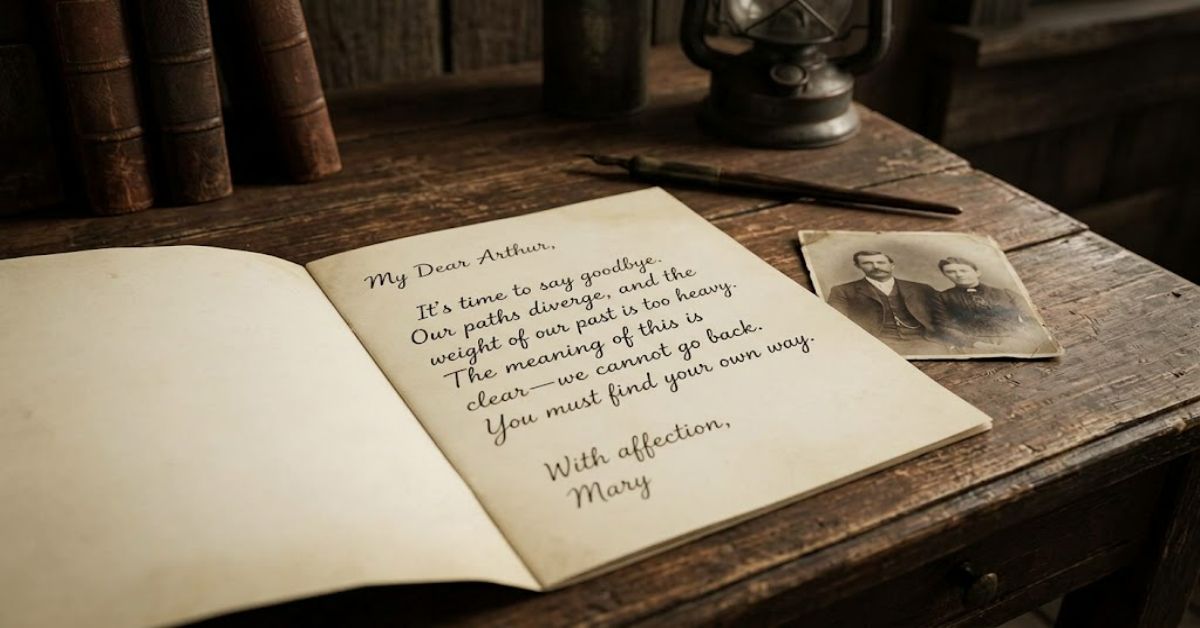 My Dear Arthur,
It's time to say goodbye.
Our paths diverge, and the
weight of our past is too heavy.
The meaning of this is
clear—we cannot go back.
You must find your own way.
With affection,
Mary